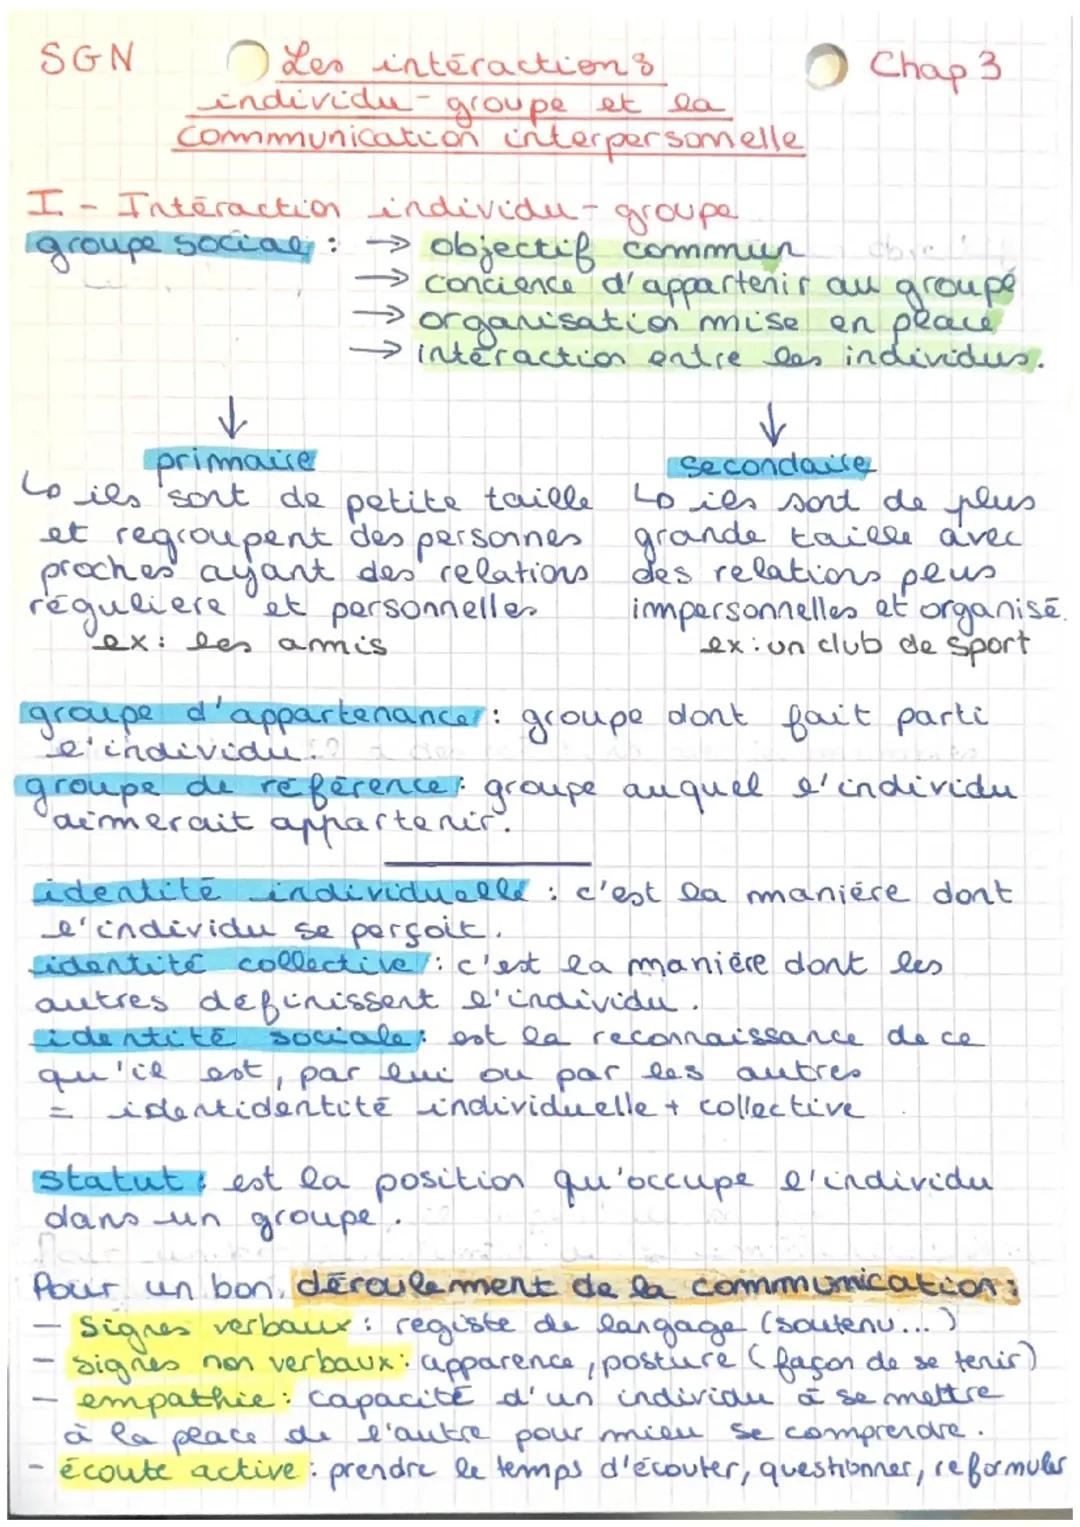 SGN
Les intéractions
Chap 3
individu-groupe et la
communication interpersonnelle
I - Intéraction individu-groupe
groupe social : → objectif commun
→ concience d'appartenir au groupe
→ organisation mise en place
→ intéraction entre les individus.
↓ ↓
primaire
↳ ils sont de petite taille
et regroupent des personnes
proches ayant des relations
régulière et personnelles
ex: les amis
secondaire
↳ ils sont de plus
grande taille avec
des relations plus
impersonnelles et organisé.
ex: un club de sport
groupe d'appartenance : groupe dont fait parti
l'individu.
groupe de référence : groupe auquel l'individu
aimerait appartenir.
identité individuelle : c'est la manière dont
l'individu se perçoit.
identité collective : c'est la manière dont les
autres définissent l'individu.
identité sociale : est la reconnaissance de ce
qu'il est, par lui ou par les autres
= identidentité individuelle + collective
statut : est la position qu'occupe l'individu
dans un groupe.
Pour un bon déroulement de la communication :
- Signes verbaux : registe de langage (soutenu...)
- signes non verbaux : apparence, posture (façon de se tenir)
- empathie : capacité d'un individu à se mettre
à la place de l'autre pour mieu se comprendre.
- écoute active : prendre le temps d'écouter, questionner, reformuler